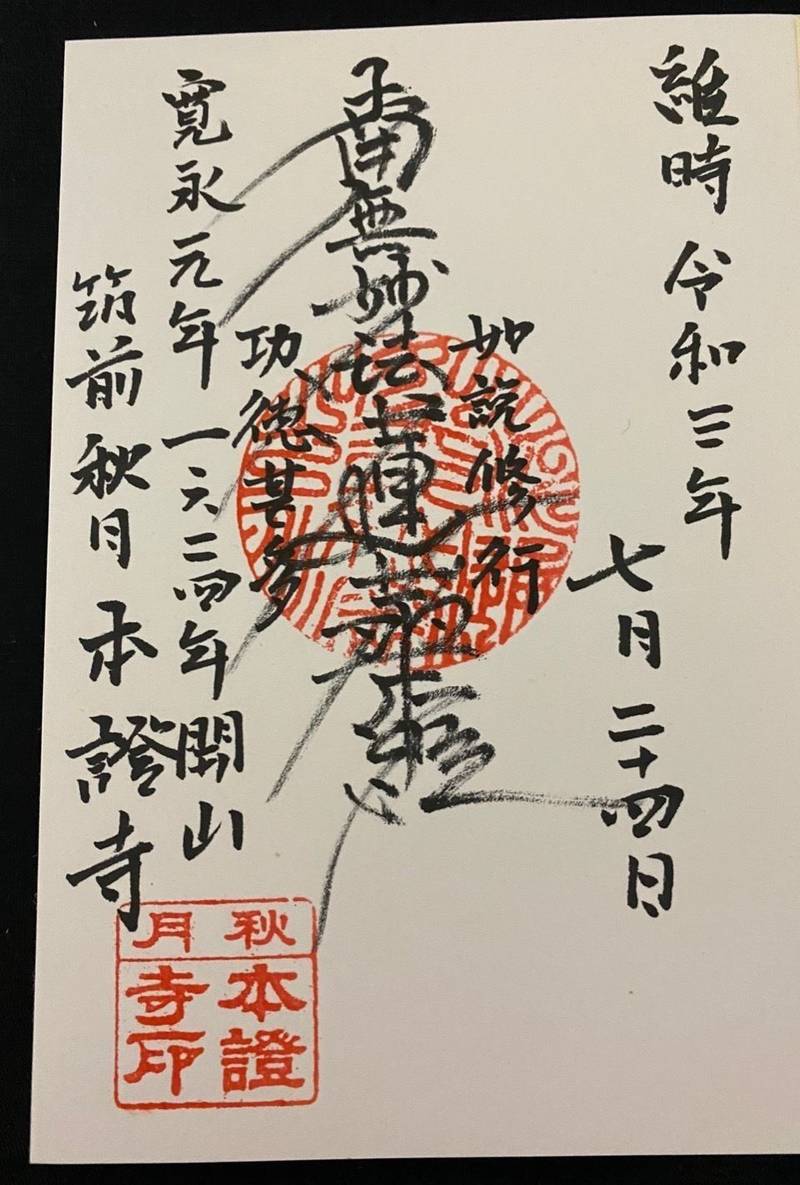 維時 令和三年
七月二十四日
如説修行
南無妙法蓮華経
功徳甚多
寛永元年 一六二四年 開山
筑前秋月 本證寺
秋月
本證寺印